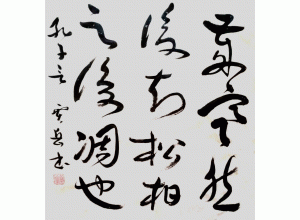 歲寒然
後知松柏
之後凋也
孔子言